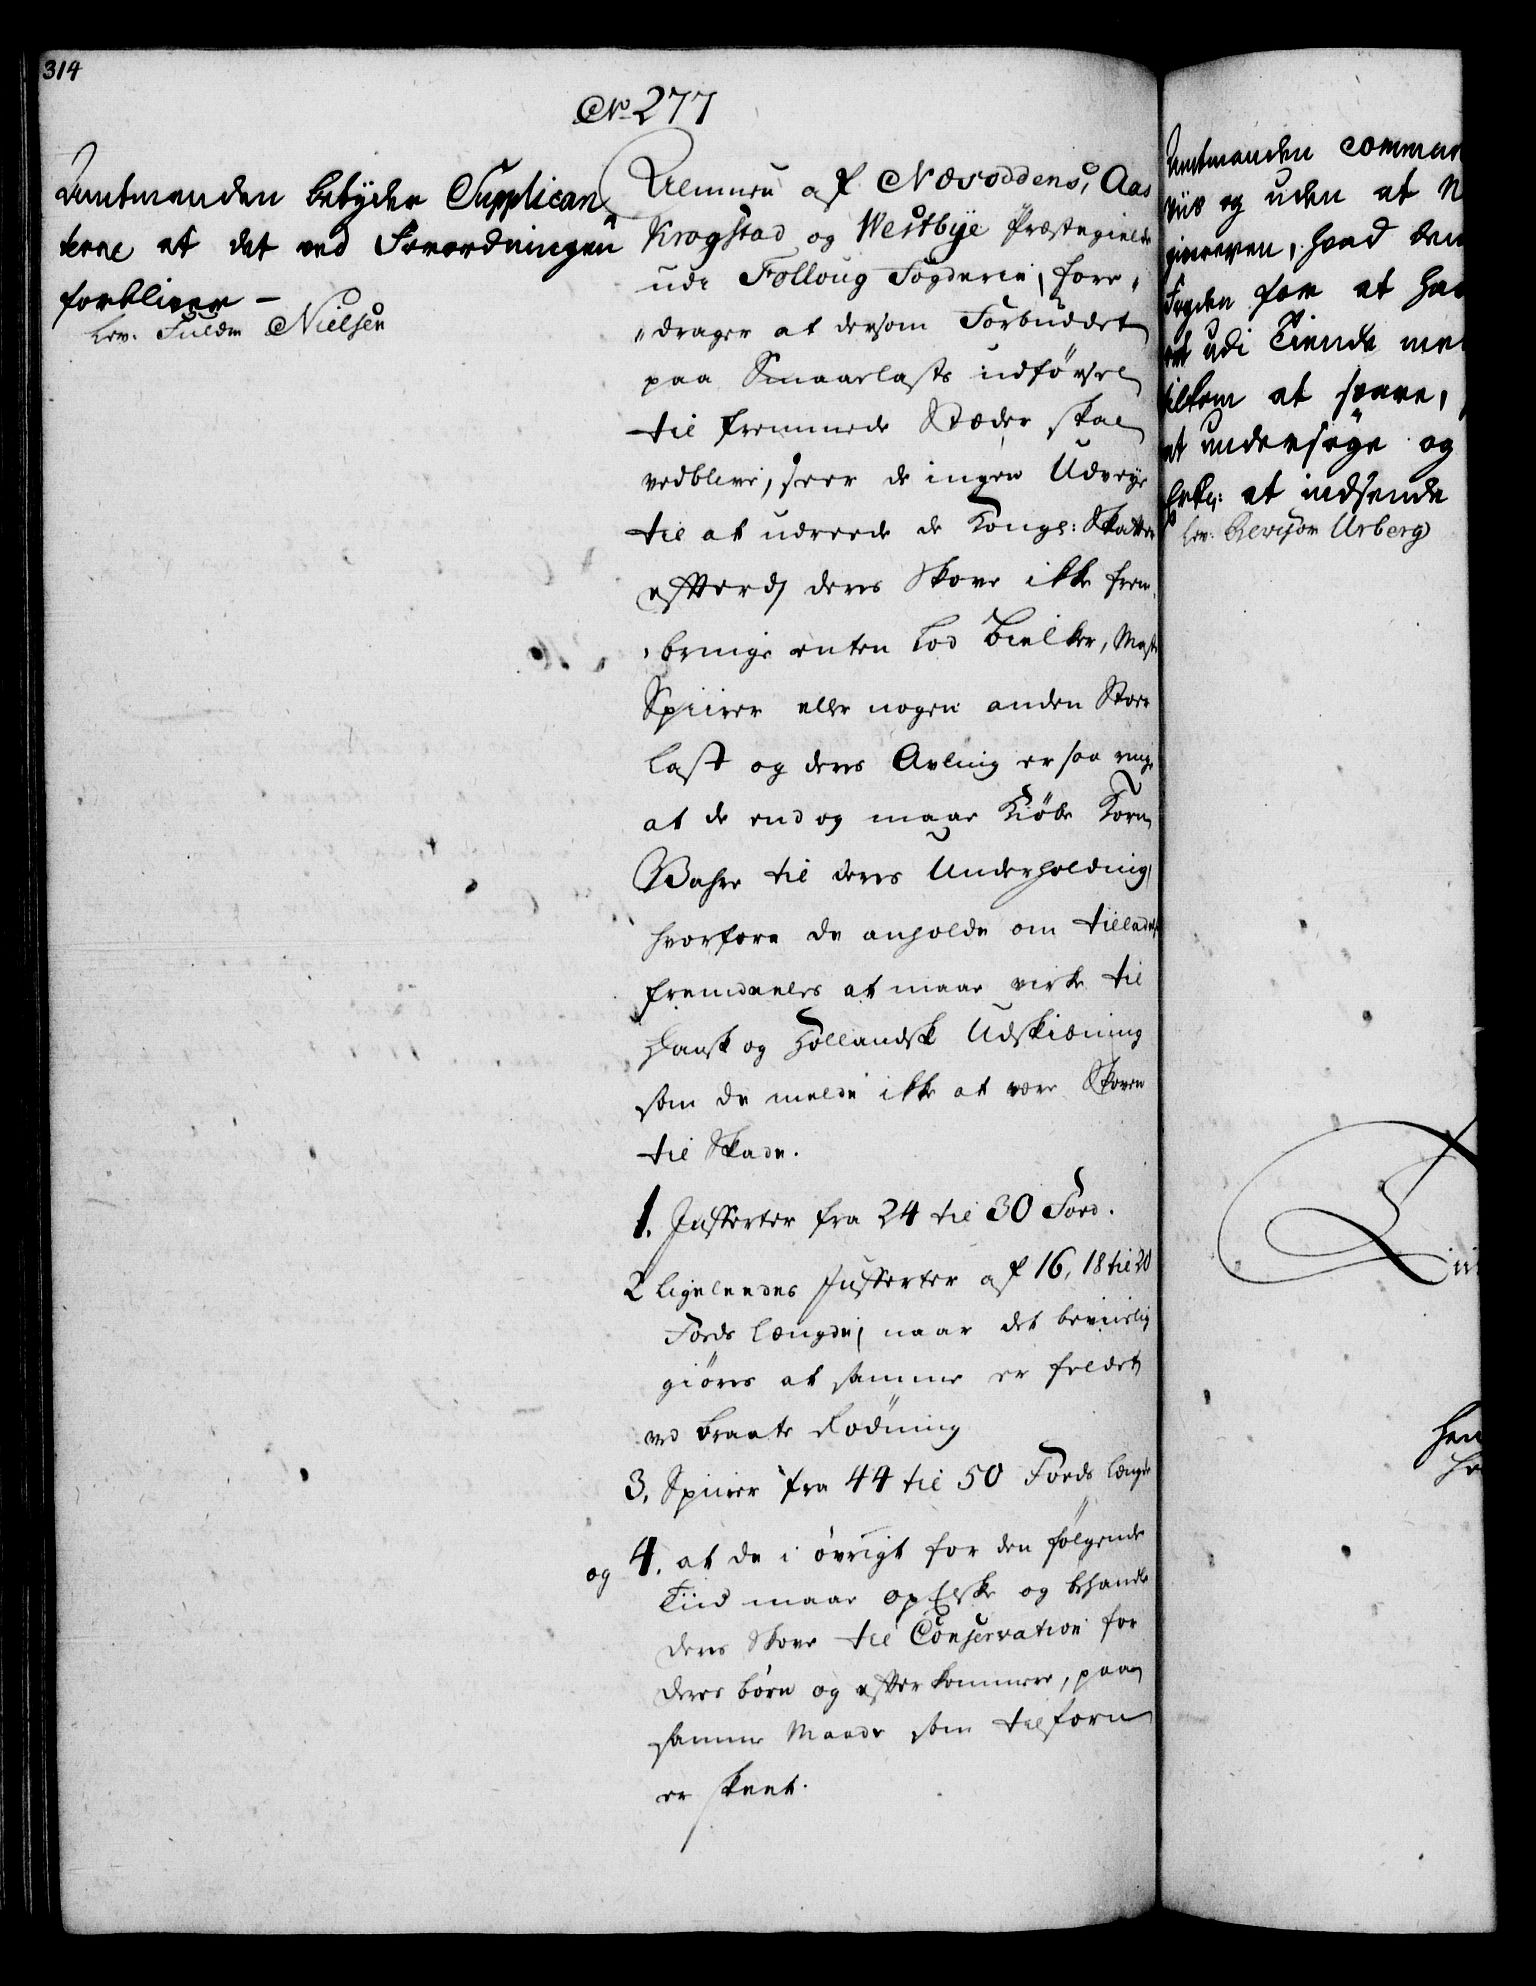 314
No 277
Amtmanden betyder Supplican
terne at det ved Forordningen
forbliver –
lev. Fuldm Nielsen
Almuen af Næsoddens, Aas
Krogstad og Westbye Præstegield
udi Folloug Fogderie, fore„
„drager at dersom Forbuddet
paa Smaalasts udførsel
til fremmede Stæder skal
vedblive, seer de ingen Udveye
til at udreede de Kongl: Skatter
efftterdj deres Skove ikke frem„
„bringe enten Lod Bielker, Maste
Spiirer eller nogen anden Stor
last og deres Avling er saa ringe
at de end og maae Kiøbe Korn
Wahre til deres Underholdning
hvorfore de anholde om tilladelse
fremdeeles at maae virke til
Dansk og Hollandsk Udskibning
som de melde ikke at være Skoven
til Skade.
1. Jufferter fra 24 til 30 Foed.
2 ligeleedes Jufferter af 16, 18 til 20
Foeds længde, naar det beviislig
giøres at samme er feldet
ved braate Rødning
3. Spiirer fra 44 til 50 Foeds længde
og 4. at de i øvrigt for den følgende
Tiid maae opElske og behandle
deres Skove til Conservation for
deres børn og efterkommere, paa
samme Maade som tilforn
er skeet.
Amtmanden commun
viis og uden at
giveren, hvad
Fogden for at
udi Tiende
at svare,
at undersøge og
at indsende
lev. Revisor Urberg